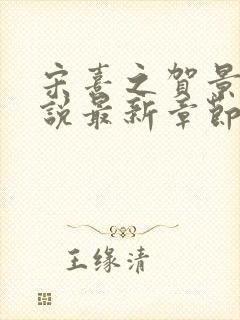 宋喜之賀景
說最新章節
王缘清